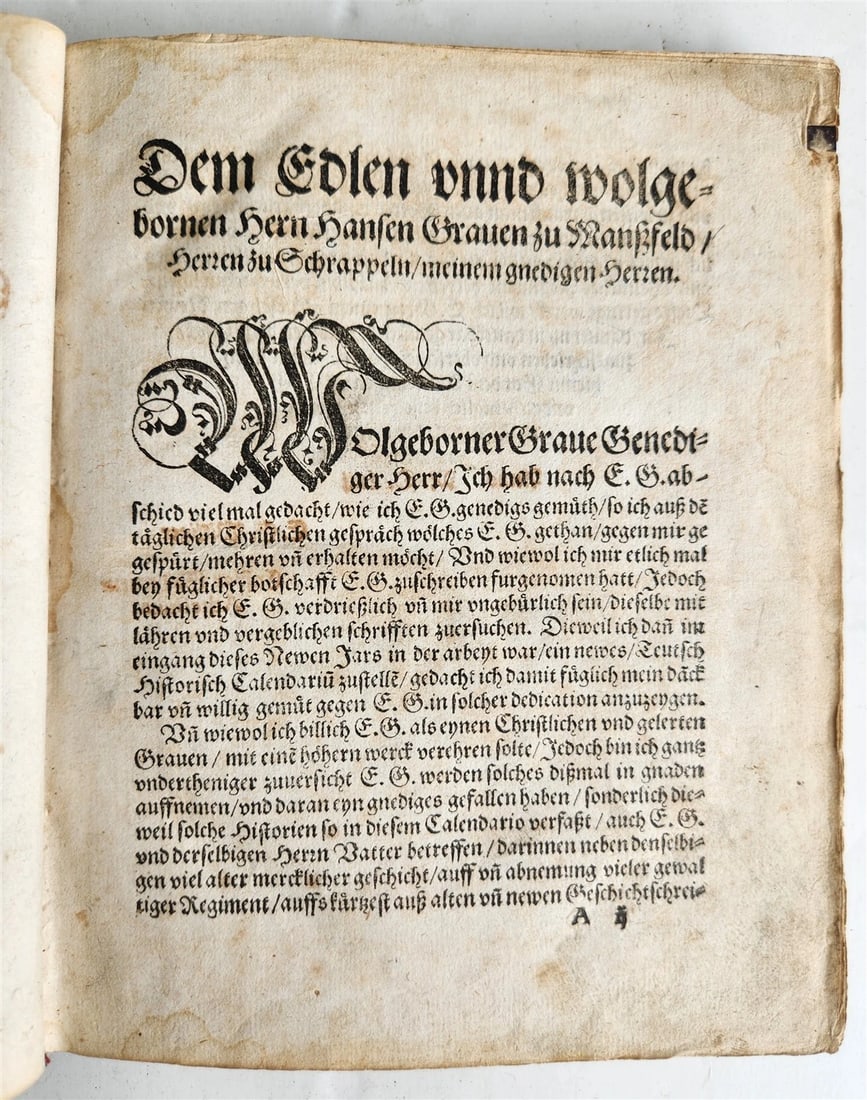 Dem Edlen vnnd wolge⸗
bornen Hern Hansen Grauen zu Manßfeld /
Herren zu Schrappeln / meinem gnedigen Herren.
WOlgeborner Graue Genedi⸗
ger Herr / Ich hab nach E. G. ab⸗
schied viel mal gedacht / wie ich E. G. genedigs gemüth / so ich auß dẽ
täglichen Christlichen gespräch wölches E. G. gethan / gegen mir ge
gespürt / mehren vñ erhalten möcht / Vnd wiewol ich mir etlich mal
bey füglicher botschafft E. G. zuschreiben furgenomen hatt / Jedoch
bedacht ich E. G. verdrießlich vñ mir vngebürlich sein / dieselbe mit
lähren vnd vergeblichen schrifften zuersuchen. Dieweil ich dañ im
eingang dieses Newen Jars in der arbeyt war / ein newes / Teutsch
Historisch Calendariũ zustellẽ / gedacht ich damit füglich mein däck
bar vñ willig gemüt gegen E. G. in solcher dedication anzuzeygen.
Vñ wiewol ich billich E. G. als eynen Christlichen vnd gelerten
Grauen / mit einẽ höhern werck verehren solte / Jedoch bin ich gantz
vndertheniger zuuersicht E. G. werden solches dißmal in gnaden
auffnemen / vnd daran eyn gnediges gefallen haben / sonderlich die⸗
weil solche Historien so in diesem Calendario verfaßt / auch E. G.
vnd derselbigen Herrn Vatter betreffen / darinnen neben denselbi⸗
gen viel alter mercklicher geschicht / auff vñ abnemung vieler gewal
tiger Regiment / auffs kürtzest auß alten vñ newen Geschichtschrei⸗
A ij